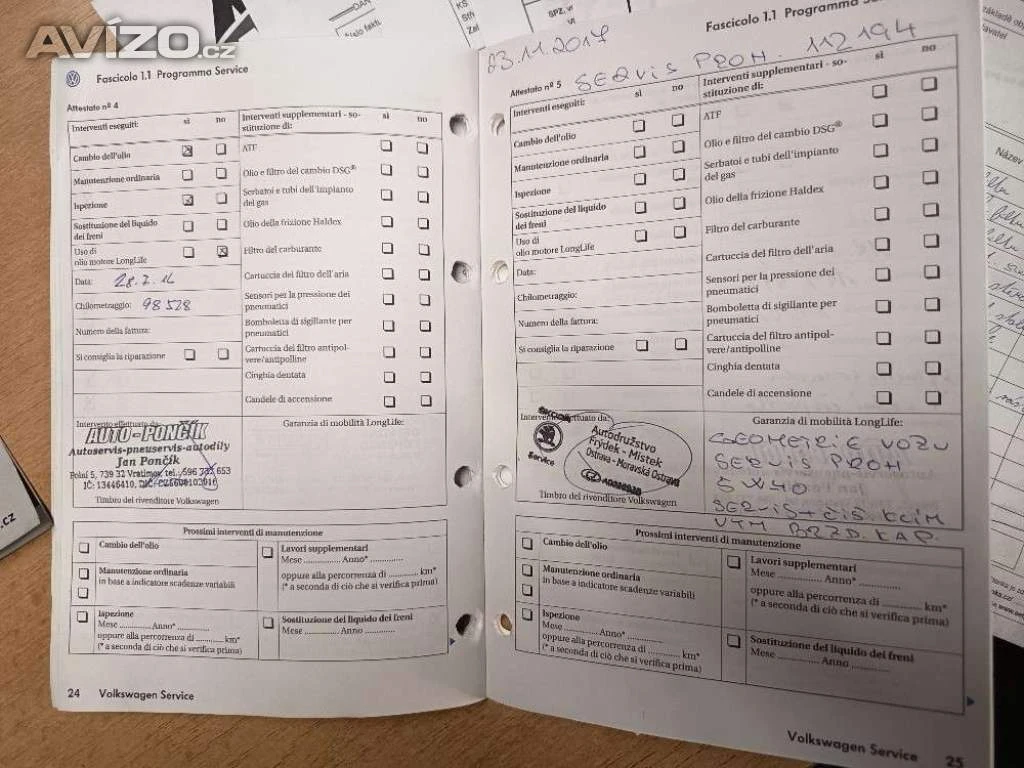 AVÍZO.cz
Fascicolo 1.1 Programma Service
Attestato nº 4
Interventi eseguiti: sì no
Cambio dell'olio
Manutenzione ordinaria
Ispezione
Sostituzione del liquido
dei freni
Uso di
olio motore LongLife
Data: 28.7.16
Chilometraggio: 98 528
Numero della fattura:
Si consiglia la riparazione
Interventi supplementari - so-
stituzione di: sì no
ATF
Olio e filtro del cambio DSG®
Serbatoi e tubi dell'impianto
del gas
Olio della frizione Haldex
Filtro del carburante
Cartuccia del filtro dell'aria
Sensori per la pressione dei
pneumatici
Bomboletta di sigillante per
pneumatici
Cartuccia del filtro antipol-
vere/antipolline
Cinghia dentata
Candele di accensione
Intervento effettuato da:
AUTO-PONČÍK
Autoservis-pneuservis-autodíly
Jan Pončík
Polní 5, 739 32 Vratimov tel.: 596 732 653
IČ: 13446410,
Timbro del rivenditore Volkswagen
Garanzia di mobilità LongLife:
Prossimi interventi di manutenzione
Cambio dell'olio
Manutenzione ordinaria
in base a indicatore scadenze variabili
Ispezione
Mese .............. Anno* ..............
oppure alla percorrenza di .......... km*
(* a seconda di ciò che si verifica prima)
Lavori supplementari
Mese .............. Anno* ..............
oppure alla percorrenza di .......... km*
(* a seconda di ciò che si verifica prima)
Sostituzione del liquido dei freni
Mese .............. Anno ..............
24 Volkswagen Service
Fascicolo 1.1 Programma
23.11.2017
SERVIS PROH. 112 194
Attestato nº 5
Interventi eseguiti: sì no
Cambio dell'olio
Manutenzione ordinaria
Ispezione
Sostituzione del liquido
dei freni
Uso di
olio motore LongLife
Data:
Chilometraggio:
Numero della fattura:
Si consiglia la riparazione
Interventi supplementari - so-
stituzione di: sì no
ATF
Olio e filtro del cambio DSG®
Serbatoi e tubi dell'impianto
del gas
Olio della frizione Haldex
Filtro del carburante
Cartuccia del filtro dell'aria
Sensori per la pressione dei
pneumatici
Bomboletta di sigillante per
pneumatici
Cartuccia del filtro antipol-
vere/antipolline
Cinghia dentata
Candele di accensione
Service
Autodružstvo
Frýdek - Místek
Ostrava - Moravská Ostrava
Timbro del rivenditore Volkswagen
Garanzia di mobilità LongLife:
GEOMETRIE VOZU
SERVIS PROH
5W40
VÝM BRZD. KAP.
Prossimi interventi di manutenzione
Cambio dell'olio
Manutenzione ordinaria
in base a indicatore scadenze variabili
Ispezione
Mese .............. Anno* ..............
oppure alla percorrenza di .......... km*
(* a seconda di ciò che si verifica prima)
Lavori supplementari
Mese .............. Anno* ..............
oppure alla percorrenza di .......... km*
(* a seconda di ciò che si verifica prima)
Sostituzione del liquido dei freni
Mese .............. Anno ..............
Volkswagen Service 25
Název